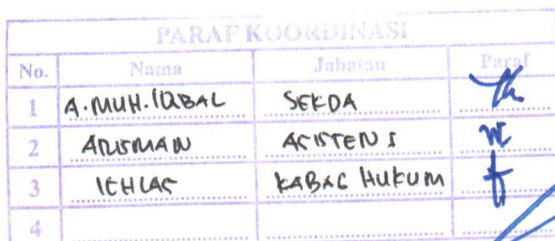 PARAF KOORDINASI
No. Nama Jabatan Paraf
1 A. MUH. IQBAL SEKDA
2 ARISMAN ASISTEN I
3 ICHLAS KABAG HUKUM
4